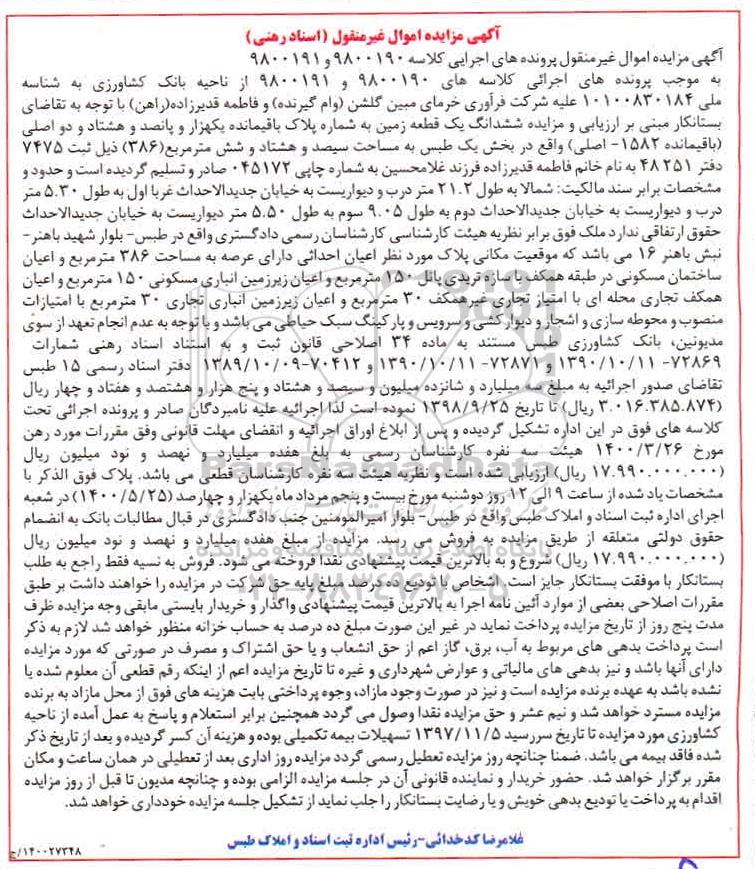 آگهی مزایده اموال غیرمنقول (اسناد رهنی)
آگهی مزایده اموال غیرمنقول پرونده های اجرایی کلاسه ۹۸۰۰۱۹۰ و ۹۸۰۰۱۹۱
به موجب پرونده های اجرائی کلاسه های ۹۸۰۰۱۹۰ و ۹۸۰۰۱۹۱ از ناحیه بانک کشاورزی به شناسه
ملی ۱۰۱۰۰۸۳۰۱۸۴ علیه شرکت فرآوری خرمای مبین گلشن (وام گیرنده) و فاطمه قدیرزاده(راهن) با توجه به تقاضای
بستانکار مبنی بر ارزیابی و مزایده ششدانگ یک قطعه زمین به شماره پلاک باقیمانده یکهزار و پانصد و هشتاد و دو اصلی
(باقیمانده ۱۵۸۲- اصلی) واقع در بخش یک طبس به مساحت سیصد و هشتاد و شش مترمربع(۳۸۶) ذیل ثبت ۷۴۷۵
دفتر ۴۸۲۵۱ به نام خانم فاطمه قدیرزاده فرزند غلامحسین به شماره چاپی ۰۴۵۱۷۲ صادر و تسلیم گردیده است و حدود و
مشخصات برابر سند مالکیت: شمالا به طول ۲۱.۲ متر درب و دیواریست به خیابان جدیدالاحداث غربا اول به طول ۵.۳۰ متر
درب و دیواریست به خیابان جدیدالاحداث دوم به طول ۹.۰۵ سوم به طول ۵.۵۰ متر دیواریست به خیابان جدیدالاحداث
حقوق ارتفاقی ندارد ملک فوق برابر نظریه هیئت کارشناسی کارشناسان رسمی دادگستری واقع در طبس- بلوار شهید باهنر-
نبش باهنر ۱۶ می باشد که موقعیت مکانی پلاک مورد نظر اعیان احداثی دارای عرصه به مساحت ۳۸۶ مترمربع و اعیان
ساختمان مسکونی در طبقه همکف با سازه تریدی پانل ۱۵۰ مترمربع و اعیان زیرزمین انباری مسکونی ۱۵۰ مترمربع و اعیان
همکف تجاری محله ای با امتیاز تجاری غیرهمکف ۳۰ مترمربع و اعیان زیرزمین انباری تجاری ۳۰ مترمربع با امتیازات
منصوب و محوطه سازی و اشجار و دیوارکشی و سرویس و پارکینگ سبک حیاطی می باشد و با توجه به عدم انجام تعهد از سوی
مدیونین، بانک کشاورزی طبس مستند به ماده ۳۴ اصلاحی قانون ثبت و به استناد اسناد رهنی شمارات
۷۲۸۶۹- ۱۳۹۰/۱۰/۱۱ و ۷۲۸۷۱- ۱۳۹۰/۱۰/۱۱ و ۷۰۴۱۲-۱۳۸۹/۱۰/۰۹ دفتر اسناد رسمی ۱۵ طبس
تقاضای صدور اجرائیه به مبلغ سه میلیارد و شانزده میلیون و سیصد و هشتاد و پنج هزار و هشتصد و هفتاد و چهار ریال
(۳.۰۱۶.۳۸۵.۸۷۴ ریال) تا تاریخ ۱۳۹۸/۹/۲۵ نموده است لذا اجرائیه علیه نامبردگان صادر و پرونده اجرائی تحت
کلاسه های فوق در این اداره تشکیل گردیده و پس از ابلاغ اوراق اجرائیه و انقضای مهلت قانونی وفق مقررات مورد رهن
مورخ ۱۴۰۰/۳/۲۶ هیئت سه نفره کارشناسان رسمی به بلغ هفده میلیارد و نهصد و نود میلیون ریال
(۱۷.۹۹۰.۰۰۰.۰۰۰ ریال) ارزیابی شده است و نظریه هیئت سه نفره کارشناسان قطعی می باشد. پلاک فوق الذکر با
مشخصات یاد شده از ساعت ۹ الی ۱۲ روز دوشنبه مورخ بیست و پنجم مرداد ماه یکهزار و چهارصد (۱۴۰۰/۵/۲۵) در شعبه
اجرای اداره ثبت اسناد و املاک طبس واقع در طبس- بلوار امیرالمومنین جنب دادگستری در قبال مطالبات بانک به انضمام
حقوق دولتی متعلقه از طریق مزایده به فروش می رسد. مزایده از مبلغ هفده میلیارد و نهصد و نود میلیون ریال
(۱۷.۹۹۰.۰۰۰.۰۰۰ ریال) شروع و به بالاترین قیمت پیشنهادی نقدا فروخته می شود. فروش به نسیه فقط راجع به طلب
بستانکار با موفقت بستانکار جایز است. اشخاص با تودیع ده درصد مبلغ پایه حق شرکت در مزایده را خواهند داشت بر طبق
مقررات اصلاحی بعضی از موارد آئین نامه اجرا به بالاترین قیمت پیشنهادی واگذار و خریدار بایستی مابقی وجه مزایده ظرف
مدت پنج روز از تاریخ مزایده پرداخت نماید در غیر این صورت مبلغ ده درصد به حساب خزانه منظور خواهد شد لازم به ذکر
است پرداخت بدهی های مربوط به آب، برق، گاز اعم از حق انشعاب و یا حق اشتراک و مصرف در صورتی که مورد مزایده
دارای آنها باشد و نیز بدهی های مالیاتی و عوارض شهرداری و غیره تا تاریخ مزایده اعم از اینکه رقم قطعی آن معلوم شده یا
نشده باشد به عهده برنده مزایده است و نیز در صورت وجود مازاد، وجوه پرداختی بابت هزینه های فوق از محل مازاد به برنده
مزایده مسترد خواهد شد و نیم عشر و حق مزایده نقدا وصول می گردد همچنین برابر استعلام و پاسخ به عمل آمده از ناحیه
کشاورزی مورد مزایده تا تاریخ سررسید ۱۳۹۷/۱۱/۵ تسهیلات بیمه تکمیلی بوده و هزینه آن کسر گردیده و بعد از تاریخ ذکر
شده فاقد بیمه می باشد. ضمنا چنانچه روز مزایده تعطیل رسمی گردد مزایده روز اداری بعد از تعطیلی در همان ساعت و مکان
مقرر برگزار خواهد شد. حضور خریدار و نماینده قانونی آن در جلسه مزایده الزامی بوده و چنانچه مدیون تا قبل از روز مزایده
اقدام به پرداخت یا تودیع بدهی خویش و یا رضایت بستانکار را جلب نماید از تشکیل جلسه مزایده خودداری خواهد شد.
غلامرضا کدخدائی-رئیس اداره ثبت اسناد و املاک طبس
۱۴۰۰۲۷۳۴۸/ج
ParsNamadData
پایگاه اطلاع رسانی مناقصه و مزایده
۰۲۱-۸۸۳۴۹۶۷۰-۵